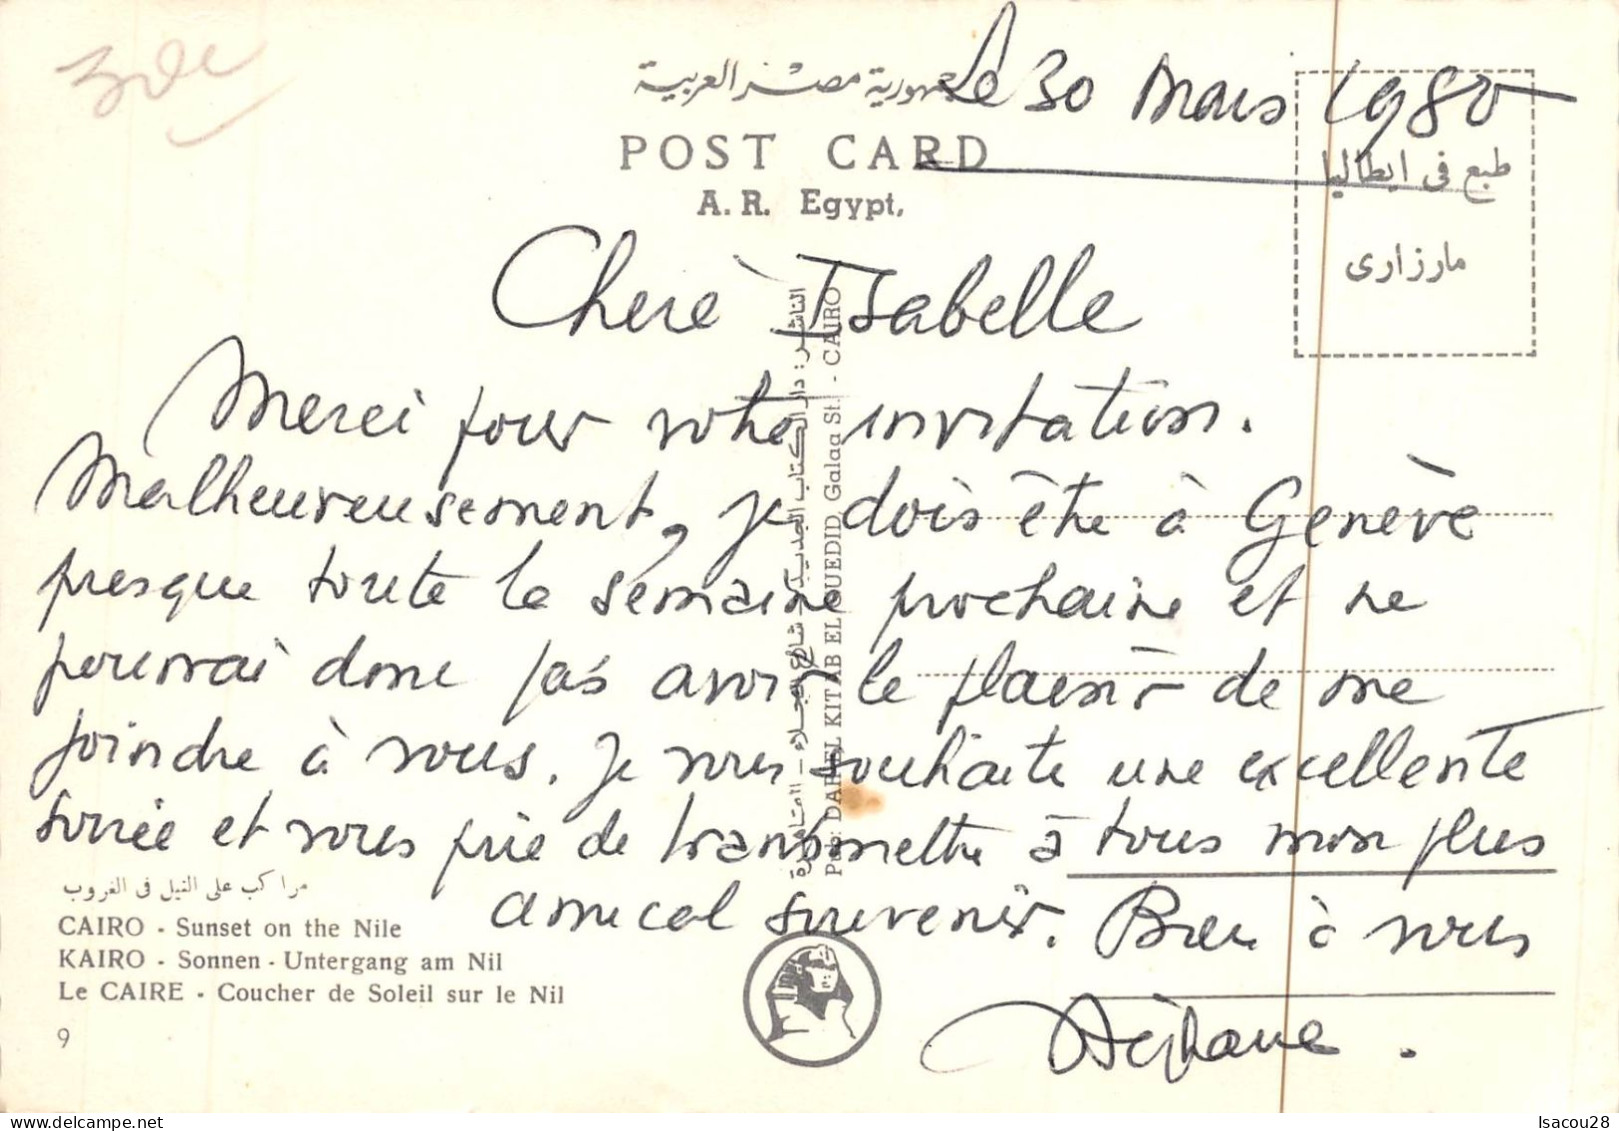 جمهورية مصر العربية
Le 30 Mars 1980
POST CARD
A. R. Egypt,
طبع فى ايطاليا
مارزارى
Chère Isabelle
Merci pour votre invitation.
Malheureusement, je dois être à Genève
presque toute la semaine prochaine et ne
pourrai donc pas avoir le plaisir de me
joindre à vous. Je vous souhaite une excellente
soirée et vous prie de transmettre à tous mon plus
amical souvenir. Bien à vous
الناشر : دار الكتاب الجديد شارع الجلاء - القاهرة
Pub: DAR EL KITAB EL GUEDID Galaa St. - CAIRO
مراكب على النيل فى الغروب
CAIRO - Sunset on the Nile
KAIRO - Sonnen - Untergang am Nil
Le CAIRE - Coucher de Soleil sur le Nil
9
Isacou28